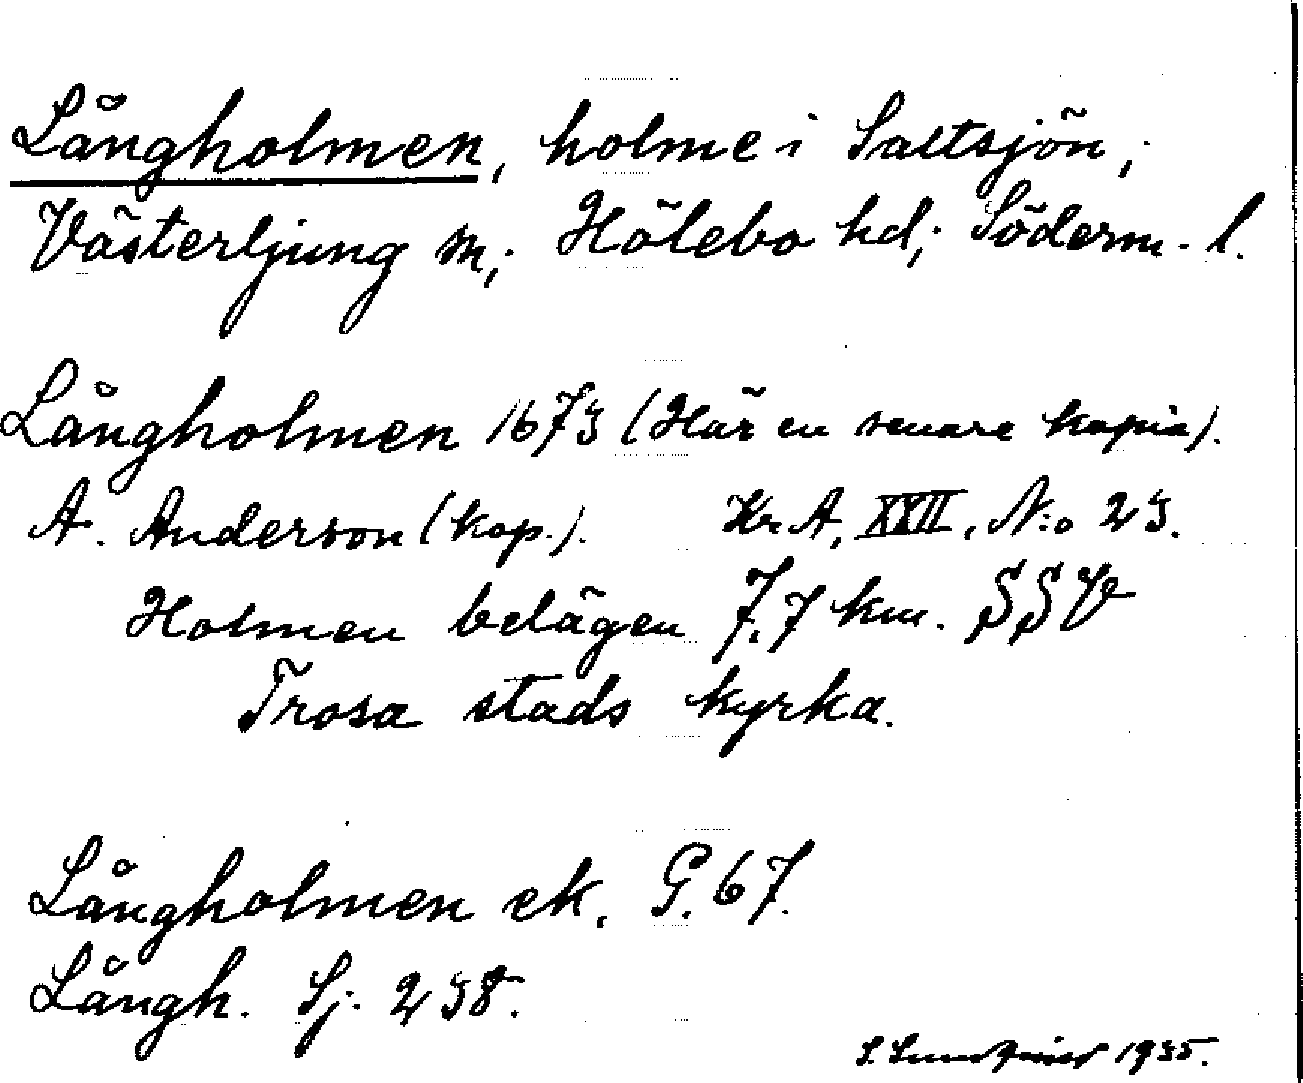 Långholmen, holme i Saltsjön,
Västerljung sn, Hölebo hd, Söderm. l.
Långholmen 1673 (Här en senare kopia).
A. Anderson (kop.). Kr. A, XXII, N:o 23.
Holmen belägen 7,7 km. SSV
Trosa stads kyrka.
Långholmen ek. G. 67.
Långh. Sj. 238.
S. 1935.